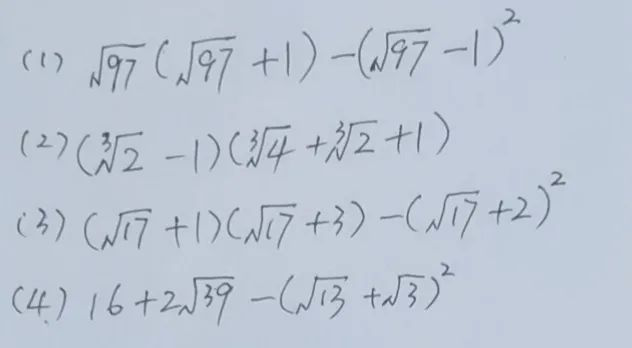 (1) √97(√97+1)-(√97-1)²
(2) (∛2-1)(∛4+∛2+1)
(3) (√17+1)(√17+3)-(√17+2)²
(4) 16+2√39-(√13+√3)²